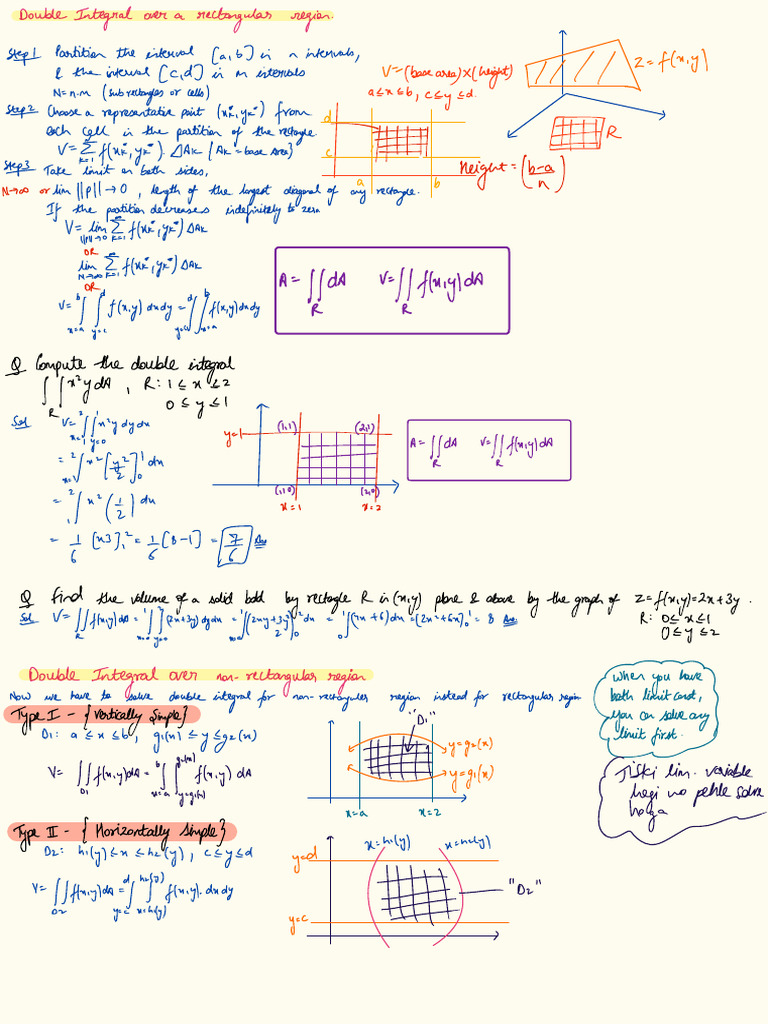 Double Integral over a rectangular region.
Step 1 Partition the interval [a,b] in n intervals,
& the interval [c,d] in m intervals
N = n·m (sub rectangles or cells)
Step 2 Choose a representative point (xk*, yk*) from
each cell in the partition of the rectangle
V = ∞Σk=1 f(xk*, yk*) ΔAk {Ak = base area}
Step 3 Take limit on both sides,
N→∞ or lim ||P||→0, length of the largest diagonal of any rectangle.
If the partition decreases indefinitely to zero
V = lim ||P||→0 ∞Σk=1 f(xk*, yk*) ΔAk
OR
lim N→∞ ∞Σk=1 f(xk*, yk*) ΔAk
OR
V = b∫x=a d∫y=c f(x,y) dxdy = d∫y=c b∫x=a f(x,y)dxdy
V = (base area) × (height)
a≤x≤b, c≤y≤d.
z = f(x,y)
R
d
c
a
b
Height = (b-a/n)
A = ∬R dA V = ∬R f(x,y)dA
Q Compute the double integral
∬R x²y dA, R: 1 ≤ x ≤ 2
0 ≤ y ≤ 1
Sol V = 2∫x=1 1∫y=0 x²y dy dx
= 2∫x=1 x² [y²/2]10 dx
= 2∫1 x² (1/2) dx
= 1/6 [x3]21 = 1/6 [8-1] = 7/6 Ans
y=1
(1,1)
(2,1)
(1,0)
(2,0)
x=1
x=2
A = ∬R dA V = ∬R f(x,y)dA
Q Find the volume of a solid bdd by rectangle R in (x,y) plane & above by the graph of z = f(x,y) = 2x+3y.
R: 0≤x≤1
0≤y≤2
Sol V = ∬R f(x,y)dA = 1∫x=0 2∫y=0 (2x+3y)dydx = 1∫x=0 (2xy+3y²/2)20 dx = 1∫0 (4x+6)dx = (2x²+6x)10 = 8 Ans
Double Integral over non-rectangular region
Now we have to solve double integral for non-rectangular region instead for rectangular region
Type I - {Vertically Simple}
D1: a ≤ x ≤ b, g1(x) ≤ y ≤ g2(x)
V = ∬D1 f(x,y)dA = b∫x=a g2(x)∫y=g1(x) f(x,y) dA
"D1"
y=g2(x)
y=g1(x)
x=a
x=2
When you have
both limit const,
you can solve any
limit first.
Jiski lim. variable
hogi wo pehle solve
hoga
Type II - {Horizontally Simple}
D2: h1(y) ≤ x ≤ h2(y), c ≤ y ≤ d
V = ∬D2 f(x,y)dA = d∫y=c h2(y)∫x=h1(y) f(x,y).dxdy
x=h1(y)
x=h2(y)
y=d
"D2"
y=c